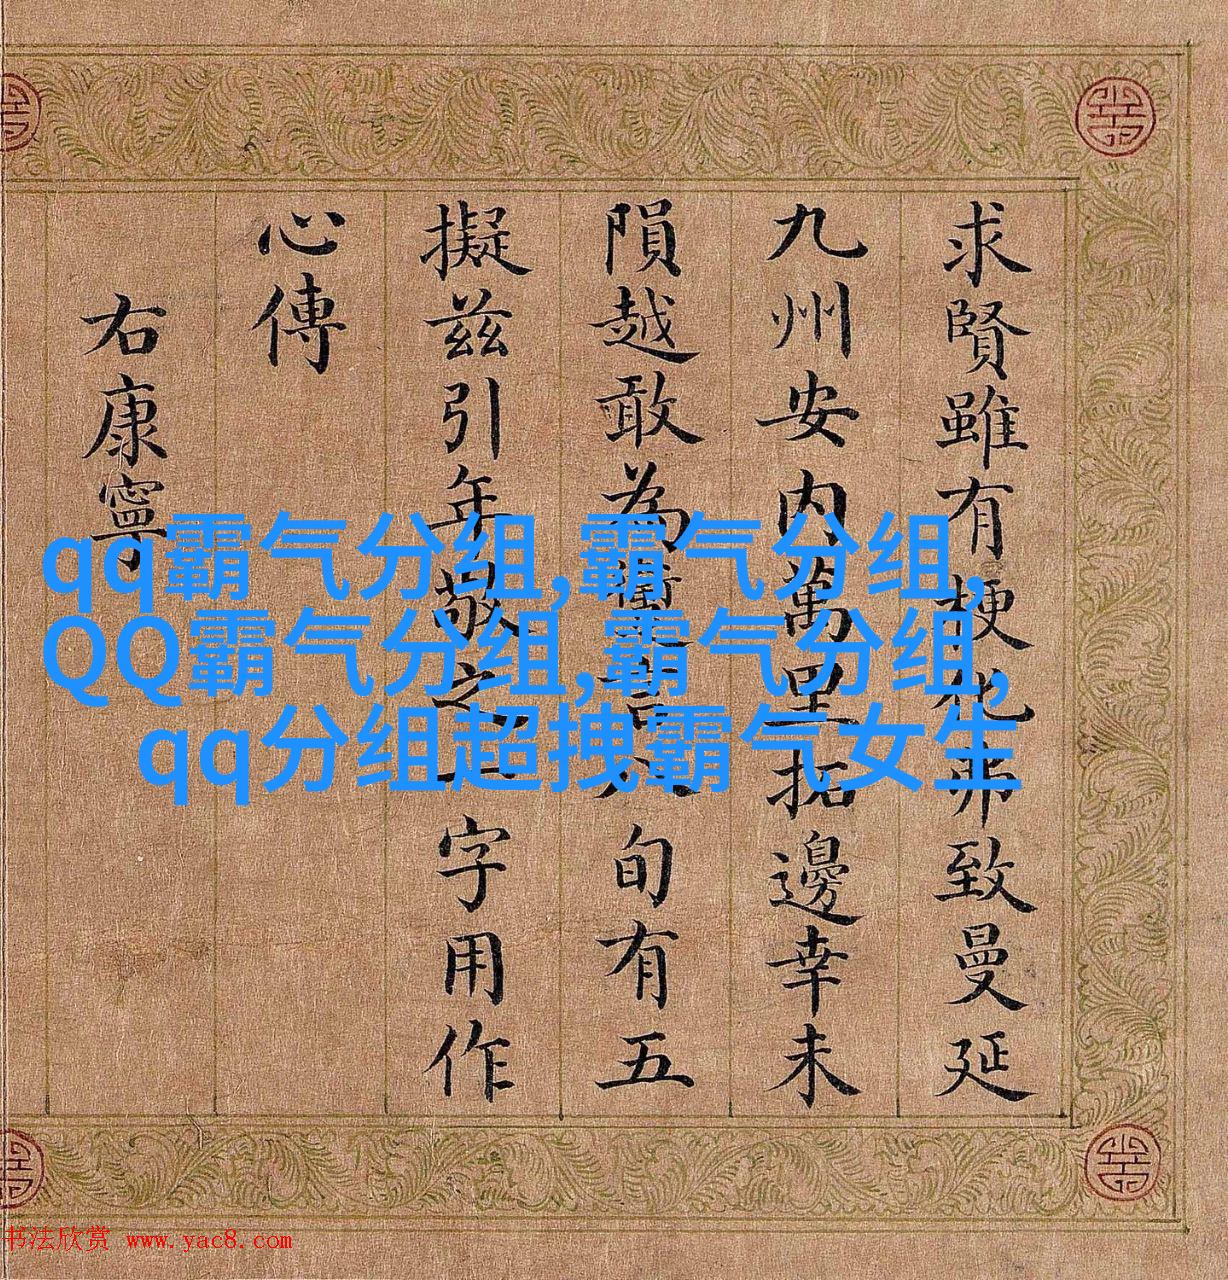 求賢雖有梗化弗致曼延
九州安内萬里拓邊幸未
隕越敢為言八旬有五
擬兹引年敬之一字用作
心傳
右康寧
qq霸气分组,霸气分组,
QQ霸气分组,霸气分组,
qq分组超拽霸气女生
书法欣赏 www.yac8.com